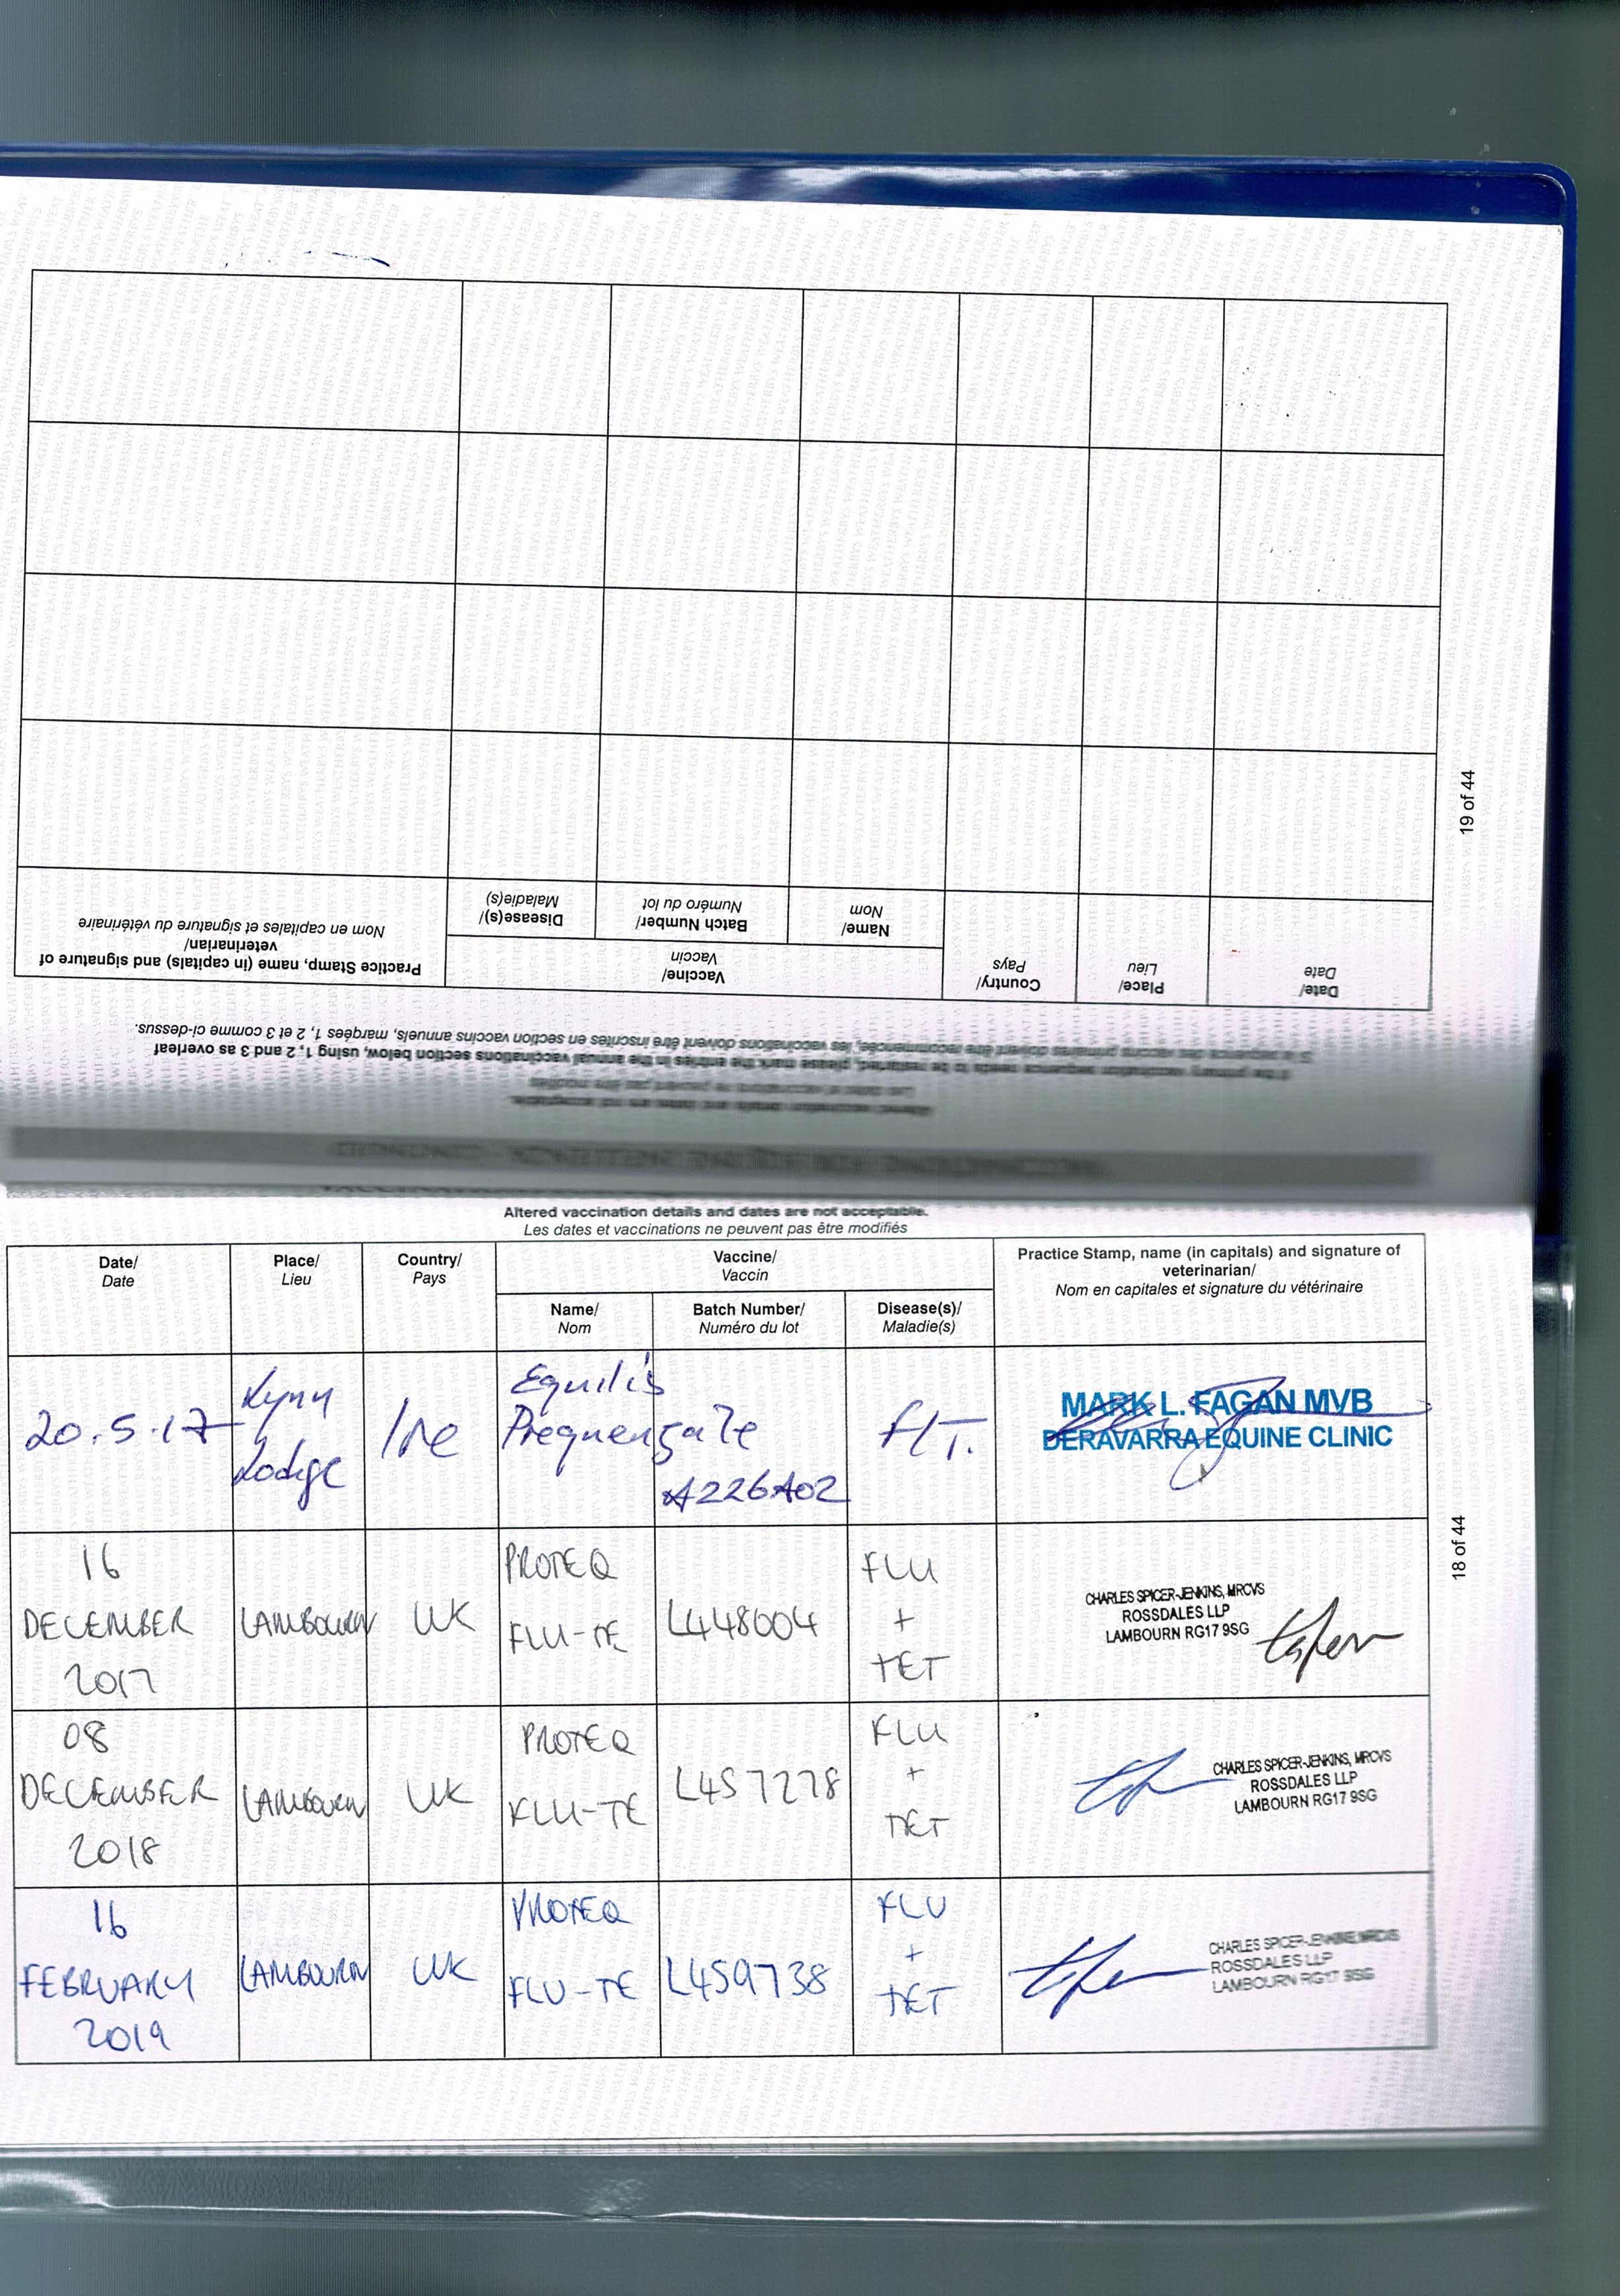 VACCINATIONS FOR EQUINE INFLUENZA - CONTINUED
Altered vaccination details and dates are not acceptable.
Les dates et vaccinations ne peuvent pas être modifiés
If the primary vaccination sequence needs to be restarted, please mark the entries in the annual vaccinations section below, using 1, 2 and 3 as overleaf
doivent être recommencées, les vaccinations doivent être inscrites en section vaccins annuels, marquées 1, 2 et 3 comme ci-dessus.
Date/ Place/ Country/ Vaccine/ Practice Stamp, name (in capitals) and signature of
Date Lieu Pays Vaccin veterinarian/
Name/ Batch Number/ Disease(s)/ Nom en capitales et signature du vétérinaire
Nom Numéro du lot Maladie(s)
19 of 44
Altered vaccination details and dates are not acceptable.
Les dates et vaccinations ne peuvent pas être modifiés
Date/ Place/ Country/ Vaccine/ Practice Stamp, name (in capitals) and signature of
Date Lieu Pays Vaccin veterinarian/
Nom en capitales et signature du vétérinaire
Name/ Batch Number/ Disease(s)/
Nom Numéro du lot Maladie(s)
Lynn Equilis
20.5.17 Ire Prequenza Te f/T. MARK L. FAGAN MVB
Lodge A226A02 DERAVARRA EQUINE CLINIC
16 PROTEQ FLU CHARLES SPICER-JENKINS, MRCVS
DECEMBER LAMBOURN UK FLU-TE L448004 + ROSSDALES LLP
2017 TET LAMBOURN RG17 9SG
08 PROTEQ FLU CHARLES SPICER-JENKINS, MRCVS
DECEMBER LAMBOURN UK FLU-TE L457278 + ROSSDALES LLP
2018 TET LAMBOURN RG17 9SG
16 PROTEQ FLU CHARLES SPICER-JENKINS, MRCVS
FEBRUARY LAMBOURN UK FLU-TE L459738 + ROSSDALES LLP
2019 TET LAMBOURN RG17 9SG
18 of 44